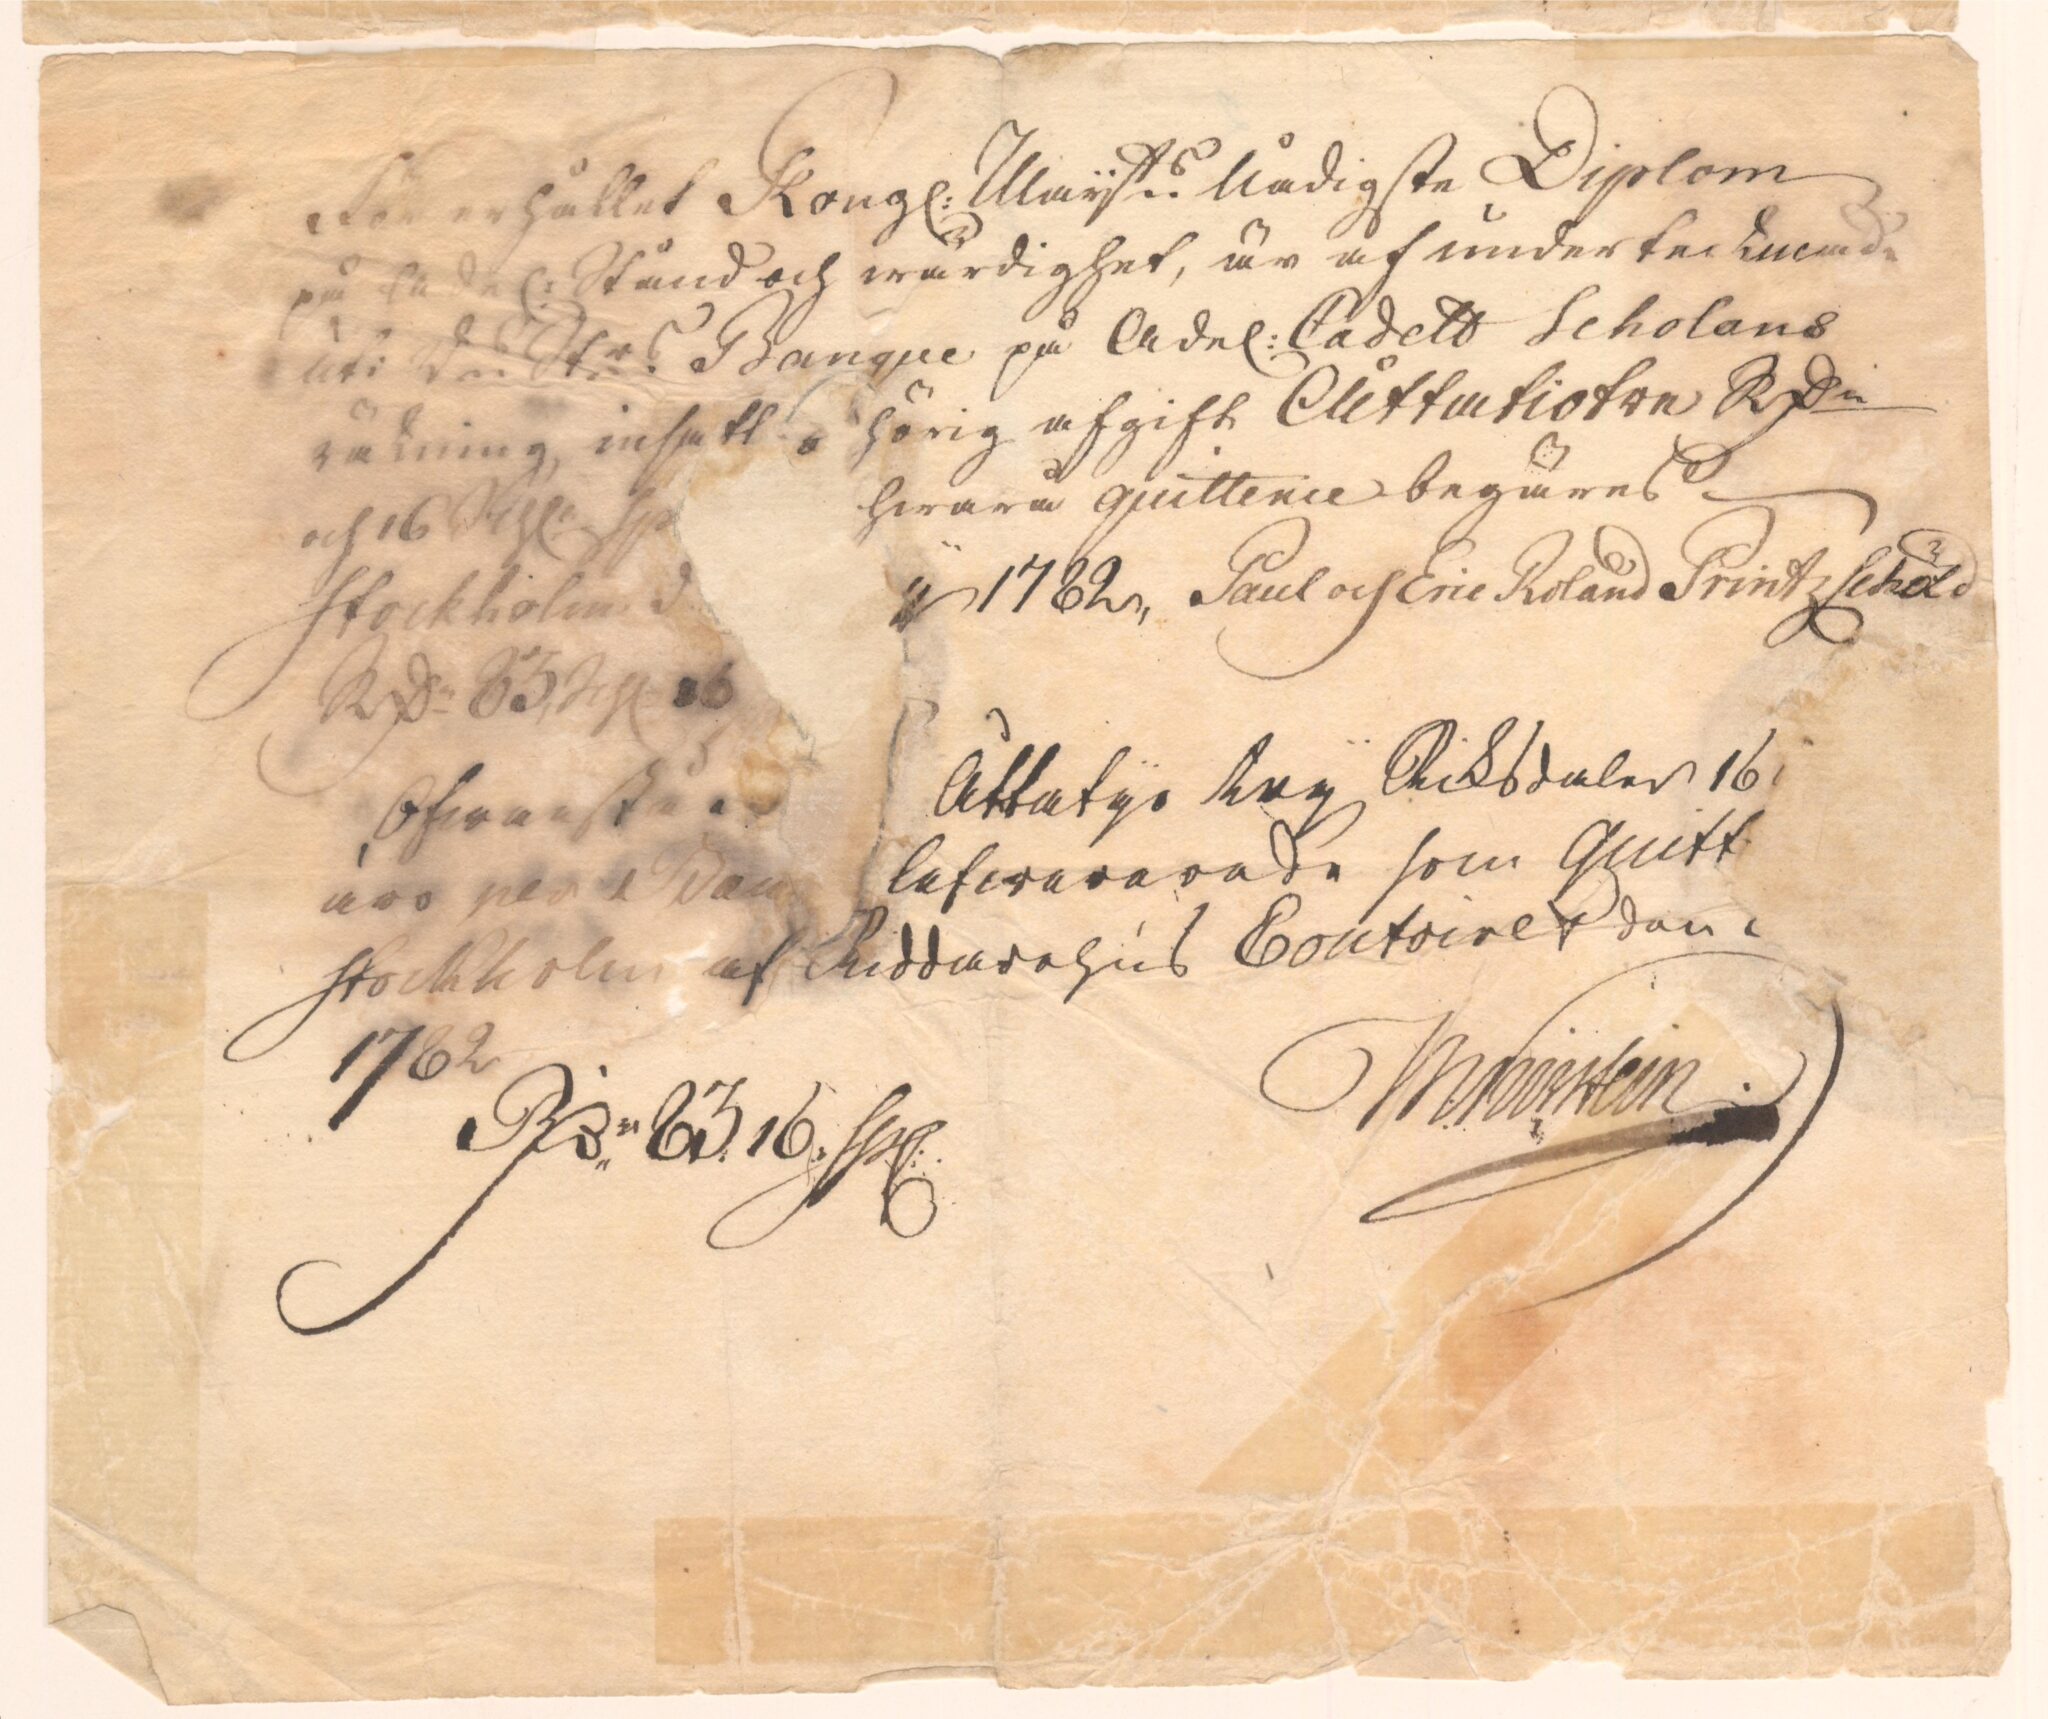 För erhållet Kongl: Maÿ:tts Nådigste Diplom
på Adel: Stånd och wärdighet, är af underteckneade
uti Rs Strs Banque på Adel: Cadett Scholans
räkning, insatt hörig afgift Åttatiotre RDr
och 16 Sk: Sp hwarå quittence begäres
Stockholm d 1782, Paul och Eric Roland Printzschöld
RDr 83, Sk 16
Ofwanstå Åttatijo treÿ Riksdaler 16
äro per Ban lefwererade som Quitt
Stockholm af Riddarehus Contoiret den
1782
RDr 83. 16. Sk: